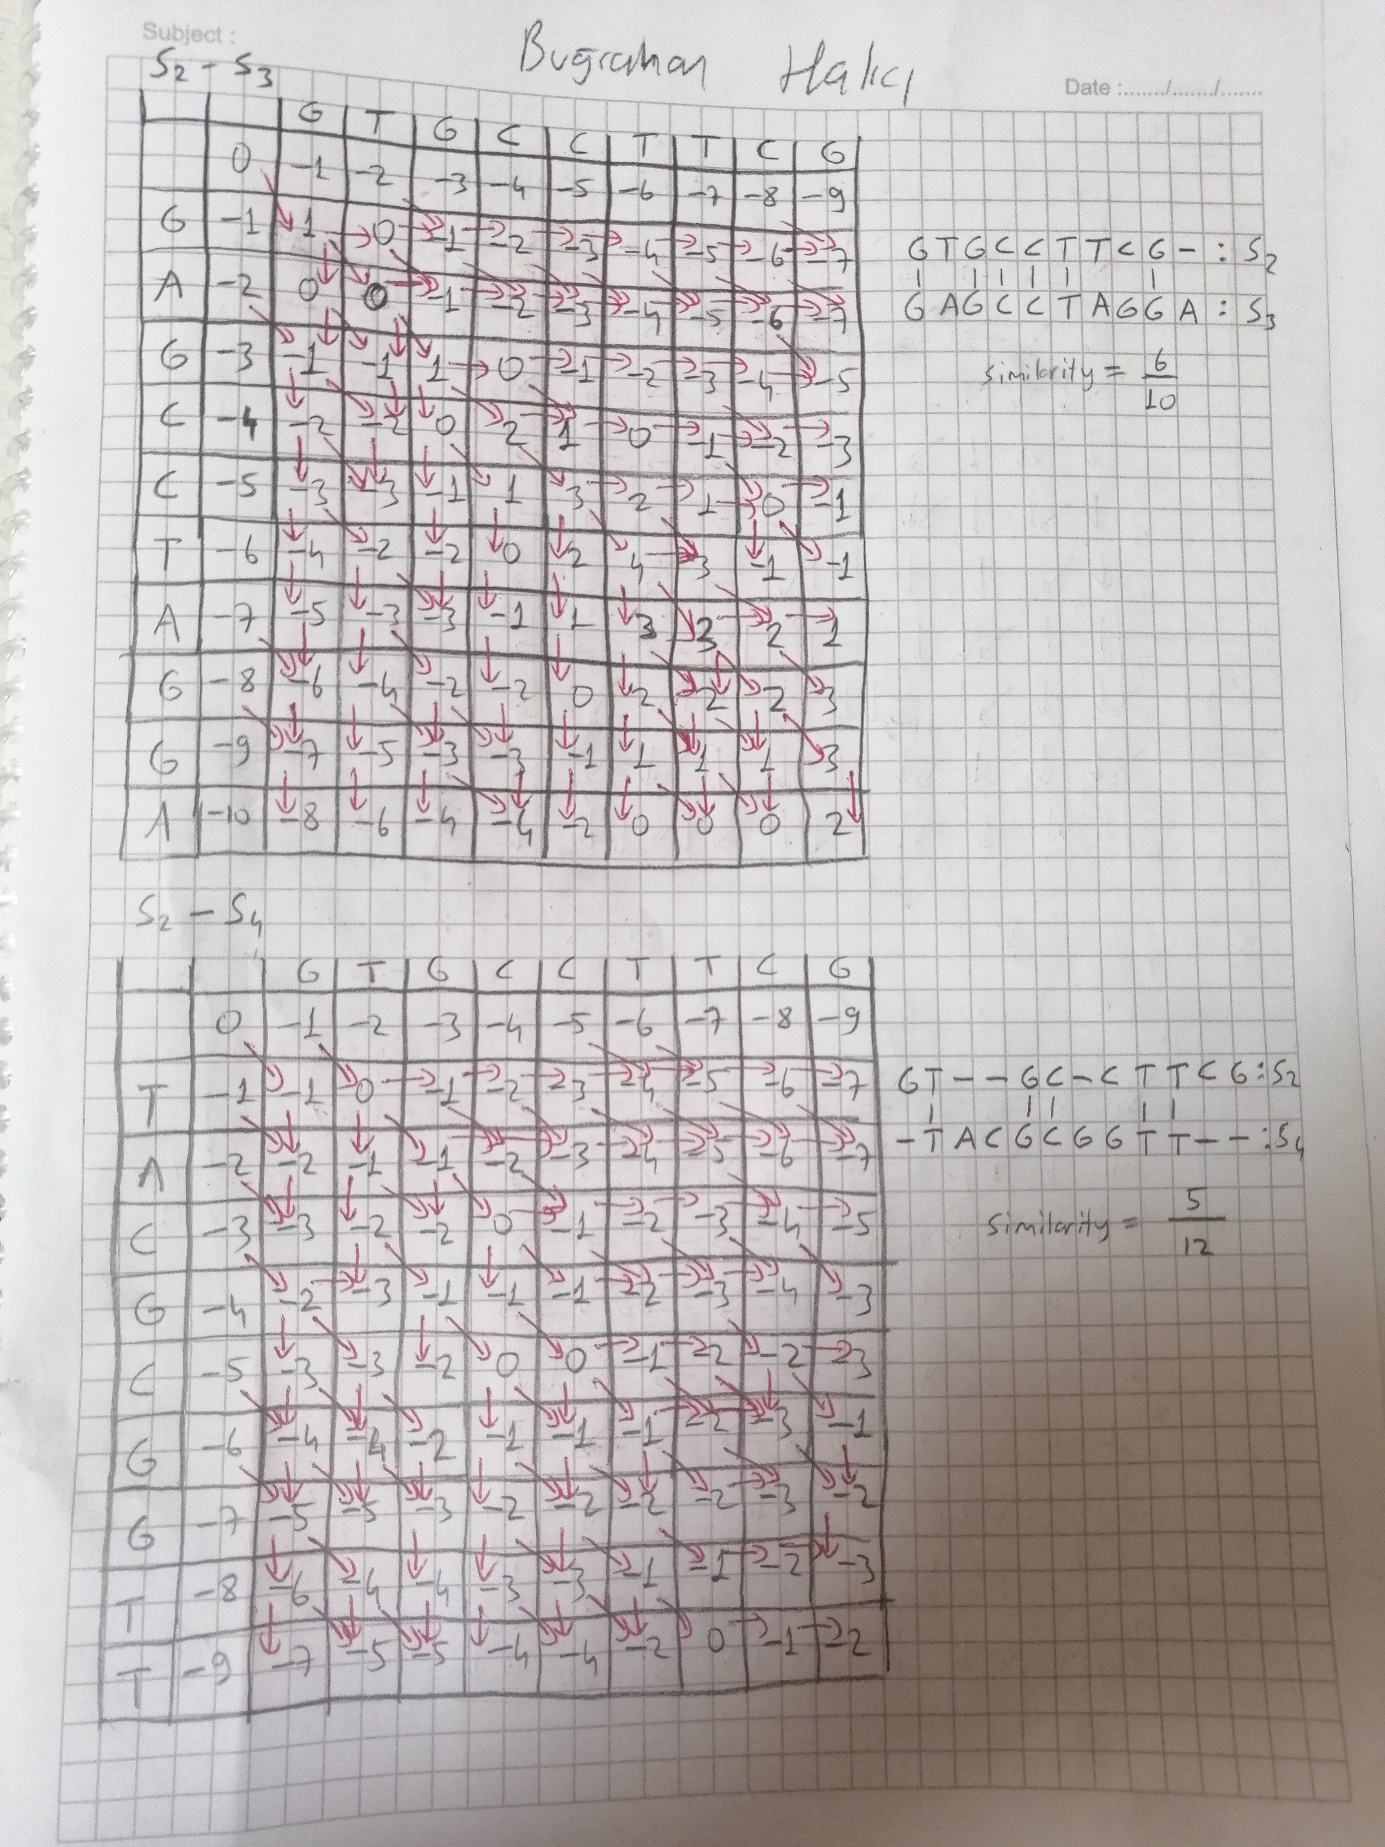 Subject :
Bugrahan Halıcı
Date :......./......./.......
S2 - S3
G T G C C T T C G
0 -1 -2 -3 -4 -5 -6 -7 -8 -9
G -1 1 0 -1 -2 -3 -4 -5 -6 -7
A -2 0 0 -1 -2 -3 -4 -5 -6 -7
G -3 -1 -1 1 0 -1 -2 -3 -4 -5
C -4 -2 -2 0 2 1 0 -1 -2 -3
C -5 -3 -3 -1 1 3 2 1 0 -1
T -6 -4 -2 -2 0 2 4 3 -1 -1
A -7 -5 -3 -3 -1 1 3 3 2 1
G -8 -6 -4 -2 -2 0 2 2 2 3
G -9 -7 -5 -3 -3 -1 1 1 1 3
A -10 -8 -6 -4 -4 -2 0 0 0 2
G T G C C T T C G - : S2
G A G C C T A G G A : S3
similarity = 6/10
S2 - S4
G T G C C T T C G
0 -1 -2 -3 -4 -5 -6 -7 -8 -9
T -1 -1 0 -1 -2 -3 -4 -5 -6 -7
A -2 -2 -1 -1 -2 -3 -4 -5 -6 -7
C -3 -3 -2 -2 0 -1 -2 -3 -4 -5
G -4 -2 -3 -1 -1 -1 -2 -3 -4 -3
C -5 -3 -3 -2 0 0 -1 -2 -2 -3
G -6 -4 -4 -2 -1 -1 -1 -2 -3 -1
G -7 -5 -5 -3 -2 -2 -2 -2 -3 -2
T -8 -6 -4 -4 -3 -3 -1 -1 -2 -3
T -9 -7 -5 -5 -4 -4 -2 0 -1 -2
G T - - G C - C T T C G : S2
- T A C G C G G T T - - : S4
similarity = 5/12